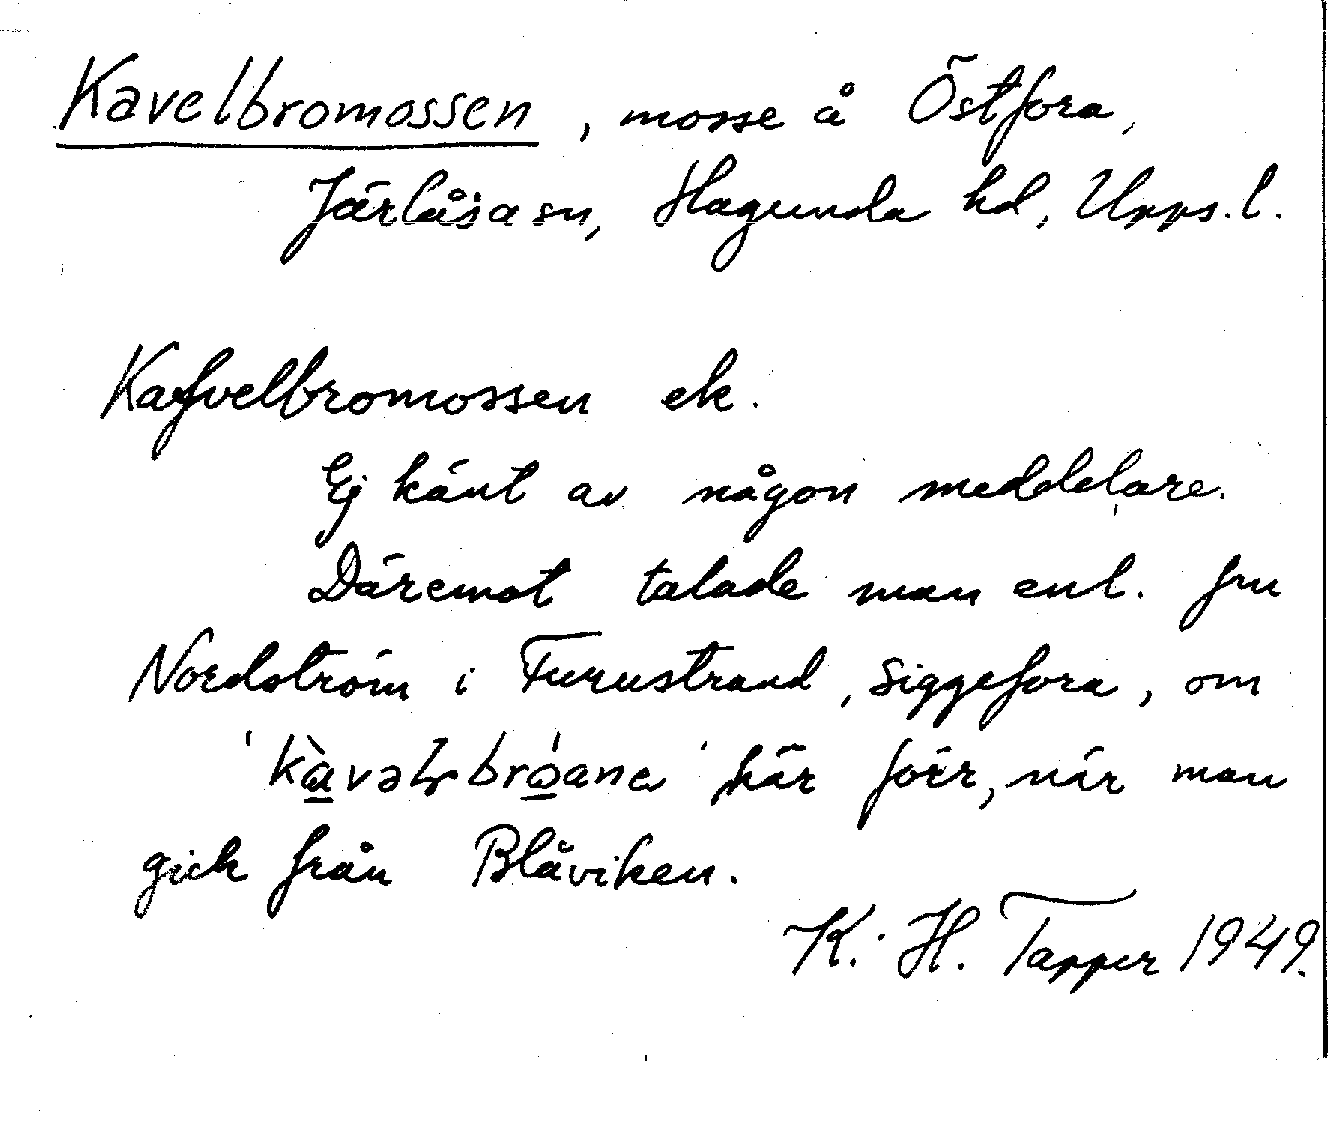 Kavelbromossen, mosse å Östfora,
Järlåsa sn, Hagunda hd, Upps. l.
Kafvelbromossen ek.
Ej känt av någon meddelare.
Däremot talade man enl. fru
Nordström i Furustrand, Siggefora, om
här förr, när man
gick från Blåviken.
K. H. Tapper 1949.